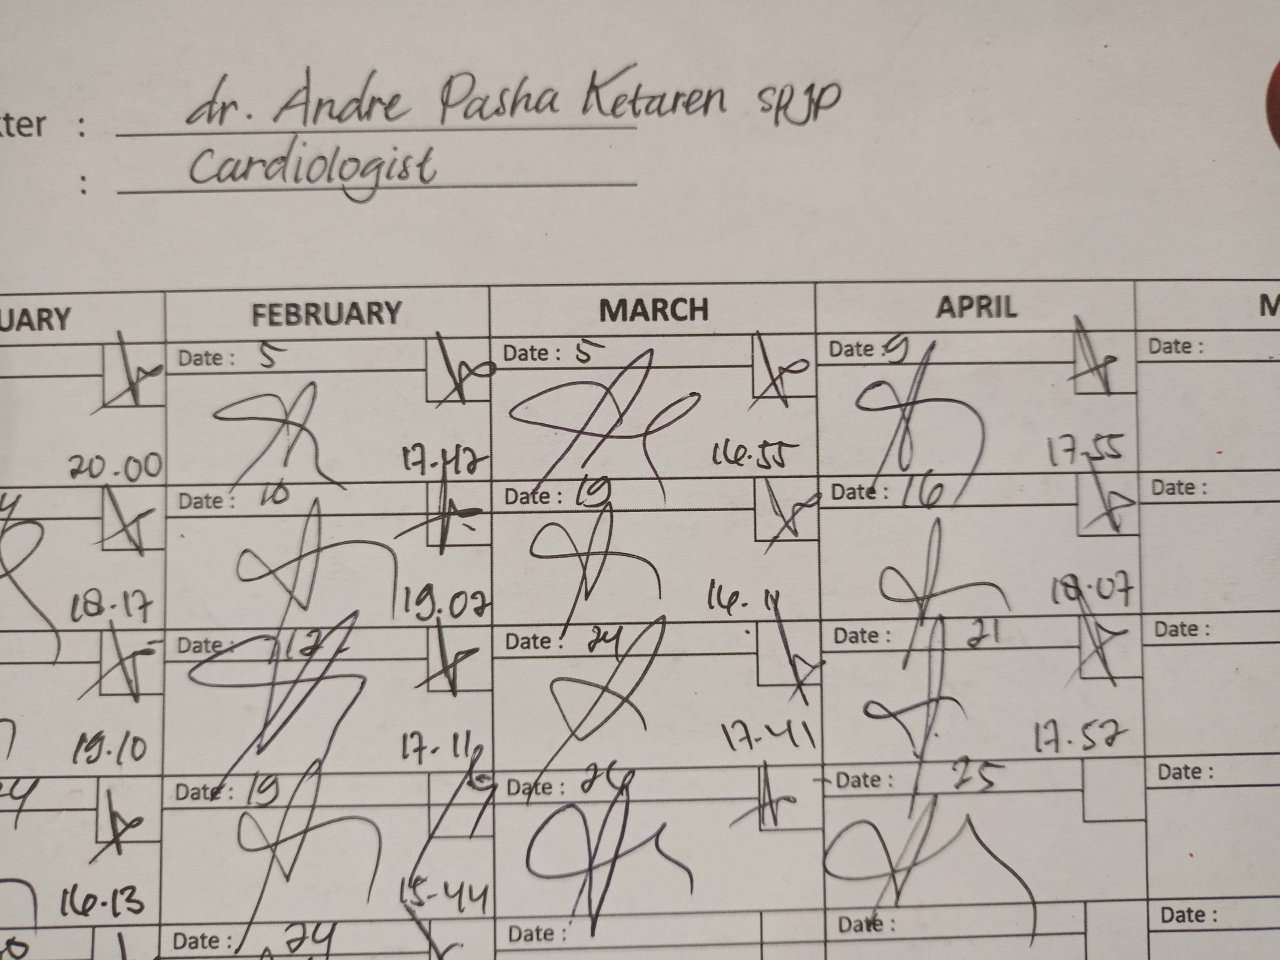 kter : dr. Andre Pasha Ketaren SpJP
: Cardiologist
UARY FEBRUARY MARCH APRIL M
Date : 5 Date : 5 Date : 9 Date :
20.00 17.42 16.55 17.55
Date : 10 Date : 19 Date : 16 Date :
18.17 19.02 16.11 18.07
Date : 12 Date : 24 Date : 21 Date :
19.10 17.11 17.41 17.52
Date : 19 Date : 26 Date : 25 Date :
16.13 15.44
Date : 24 Date : Date : Date :